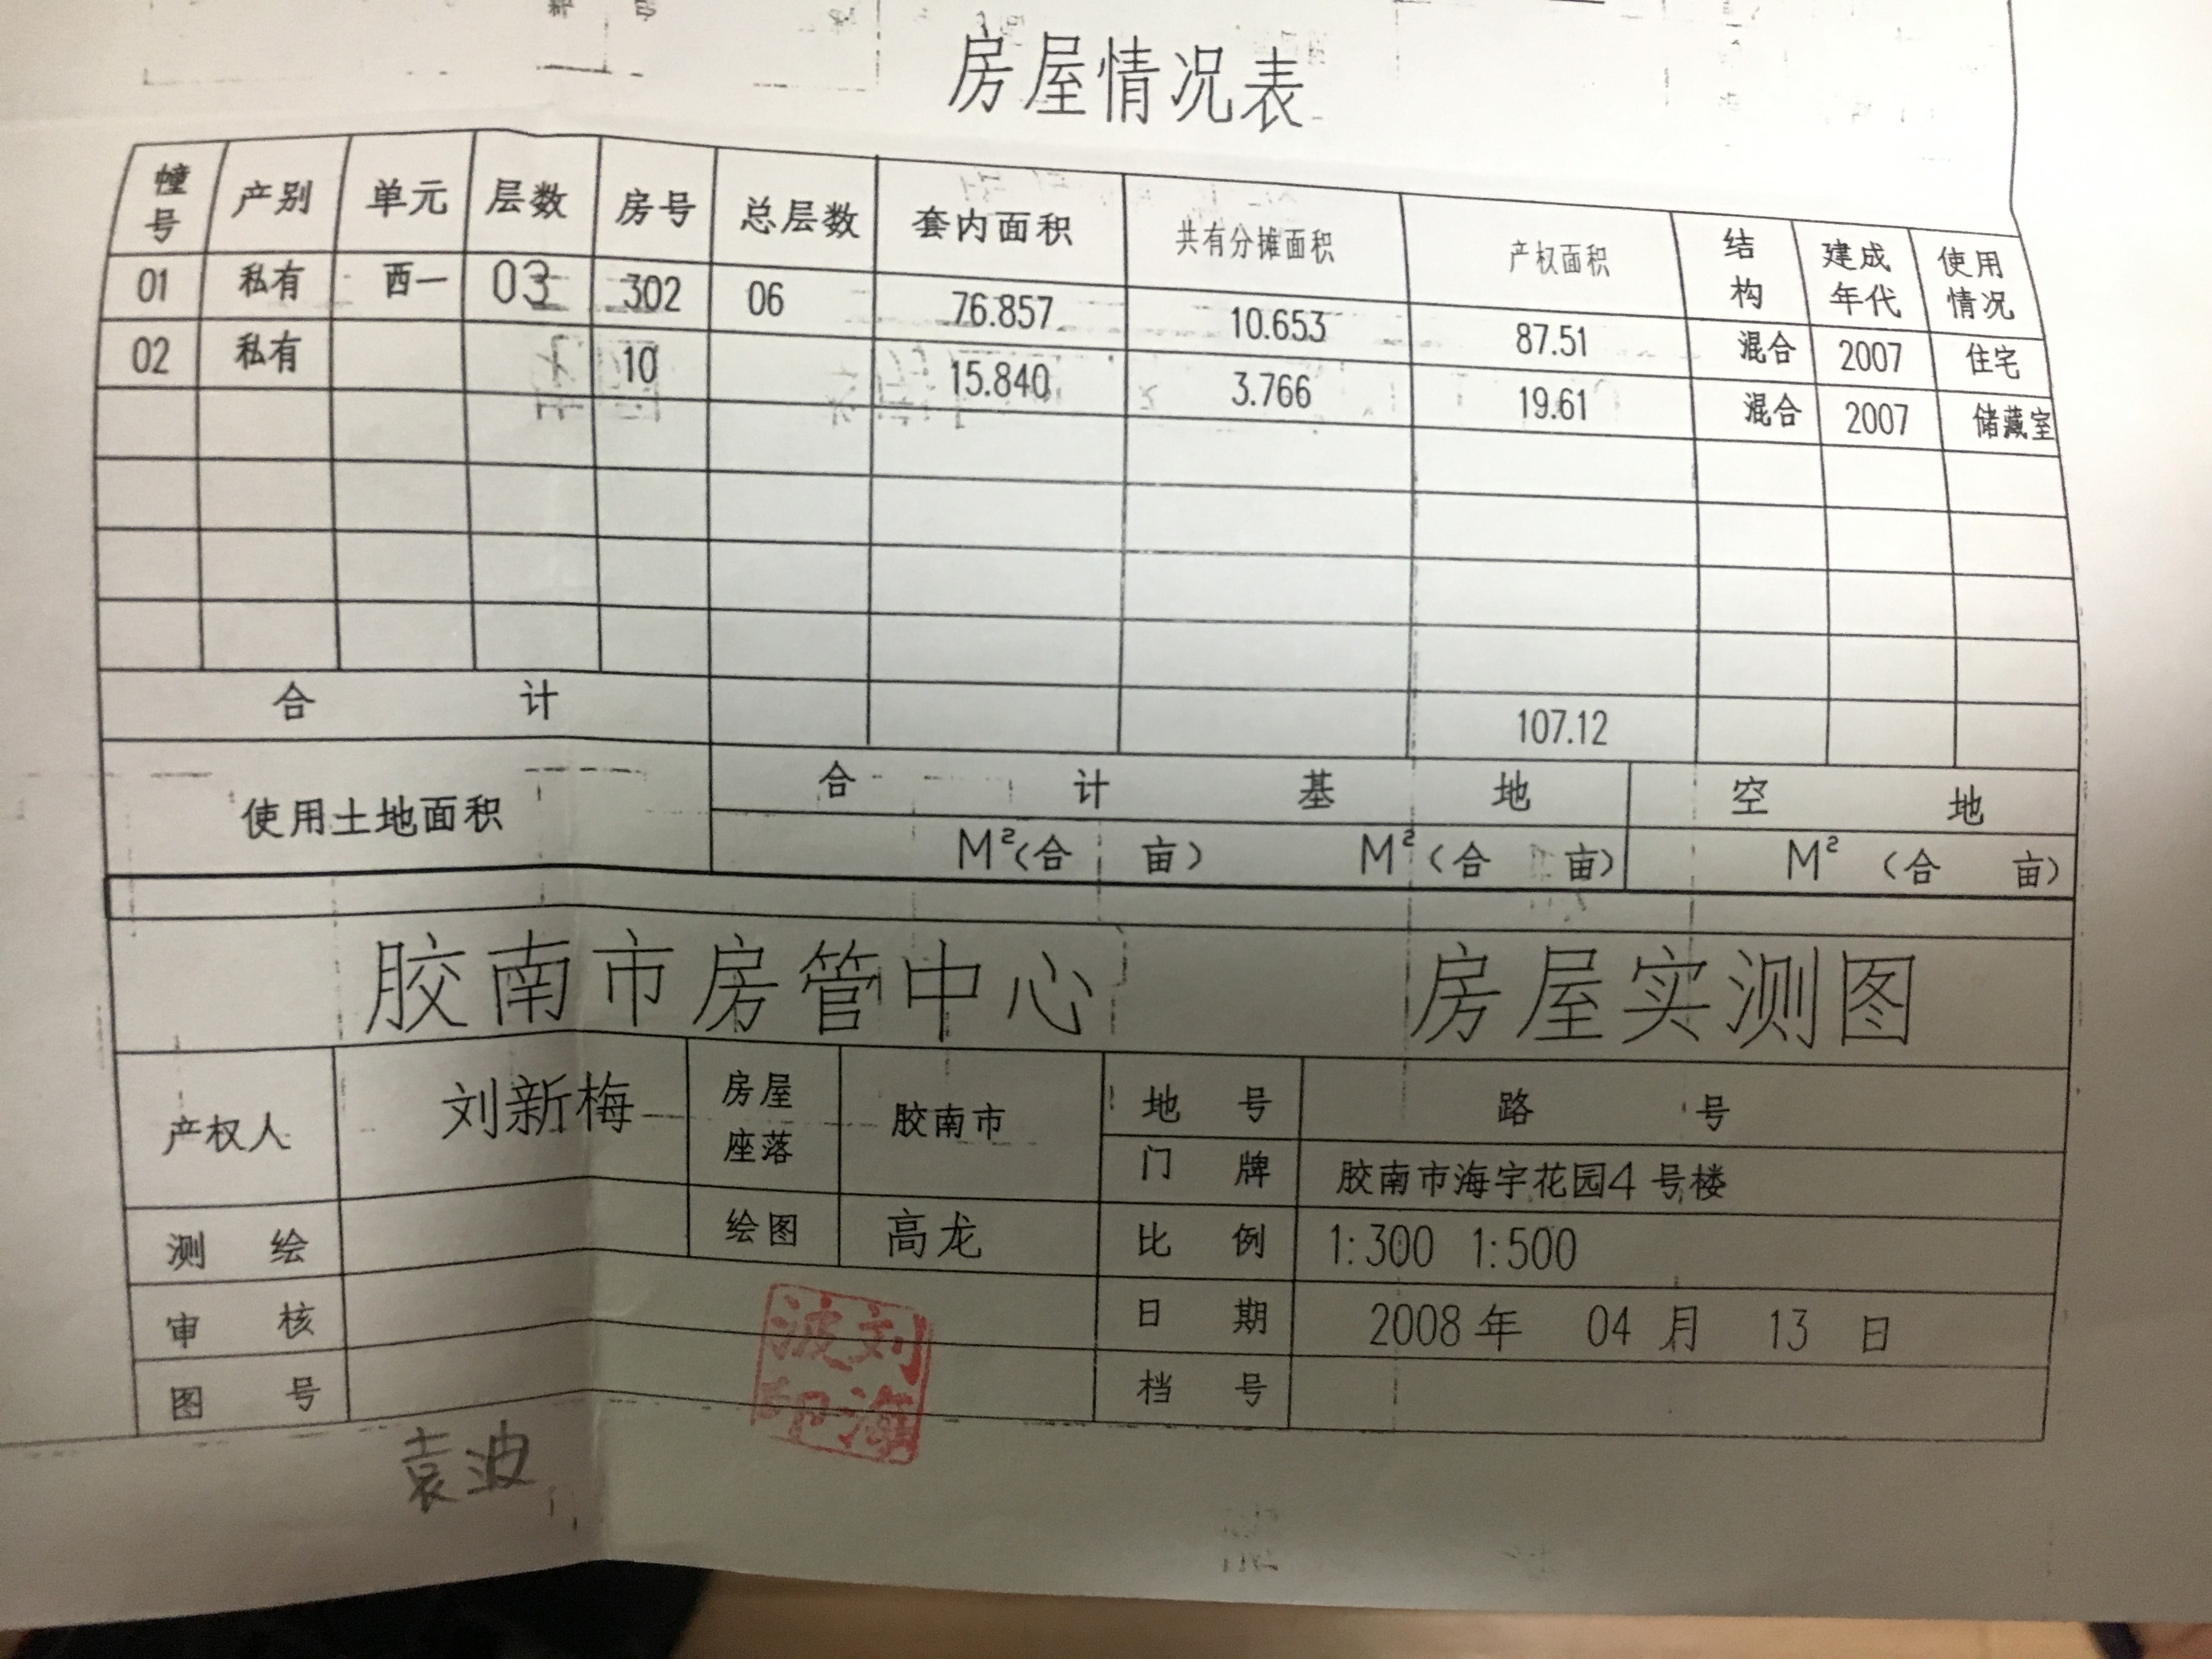 房屋情况表
幢号 产别 单元 层数 房号 总层数 套内面积 共有分摊面积 产权面积 结构 建成年代 使用情况
01 私有 西一 03 302 06 76.857 10.653 87.51 混合 2007 住宅
02 私有 10 15.840 3.766 19.61 混合 2007 储藏室
合 计 107.12
使用土地面积 合 计 基 地 空 地
M²(合 亩) M²(合 亩) M² (合 亩)
胶南市房管中心 房屋实测图
产权人 刘新梅 房屋座落 胶南市 地 号 路 号
门 牌 胶南市海宇花园4号楼
测 绘 绘图 高龙 比 例 1:300 1:500
审 核 日 期 2008年 04月 13日
图 号 档 号
刘海波印
袁波